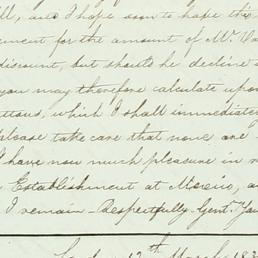 ll, and I hope soon to hope this
ement for the amount of Mr. Va
discount, but should he decline
you may therefore calculate upon
ttons, which I shall immediately
please take care that none are
I have now much pleasure in
Establishment at Mexico, a
I remain Respectfully Gent. You
12th March 183